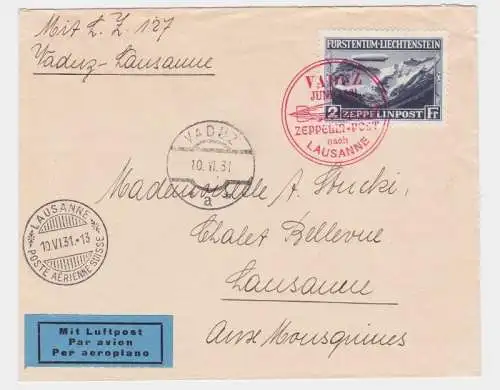 Mit L. Z. 127
Vaduz-Lausanne
FÜRSTENTUM-LIECHTENSTEIN
2 ZEPPELINPOST Fr
VADUZ
ZEPPELIN-POST
nach
LAUSANNE
VADUZ
10.VI.31
a
Mademoiselle A. Stucki,
Chalet Bellevue
Lausanne
LAUSANNE
10.VI.31.-13
POSTE AÉRIENNE SUISSE
Mit Luftpost
Par avion
Per aeroplano